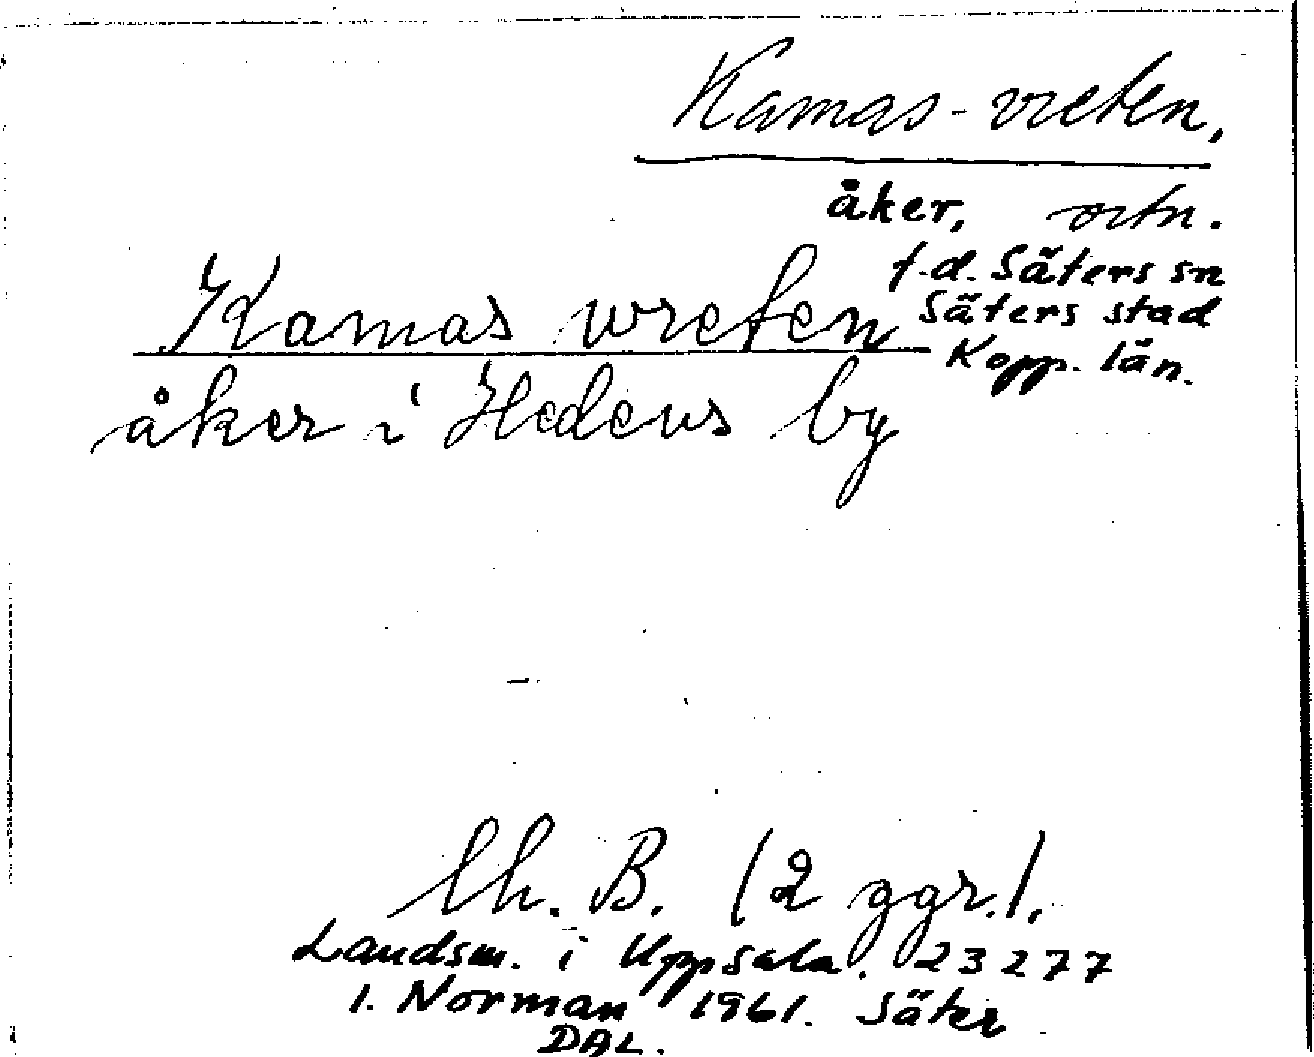 Kamas-vreten,
åker, ortn.
f.d. Säters sn
Säters stad
Kopp. län.
Kamas vreten
åker i Hedens by
lh. B. (2 ggr.).
Landsm. i Uppsala. 23277
I. Norman 1961. Säter
DAL.